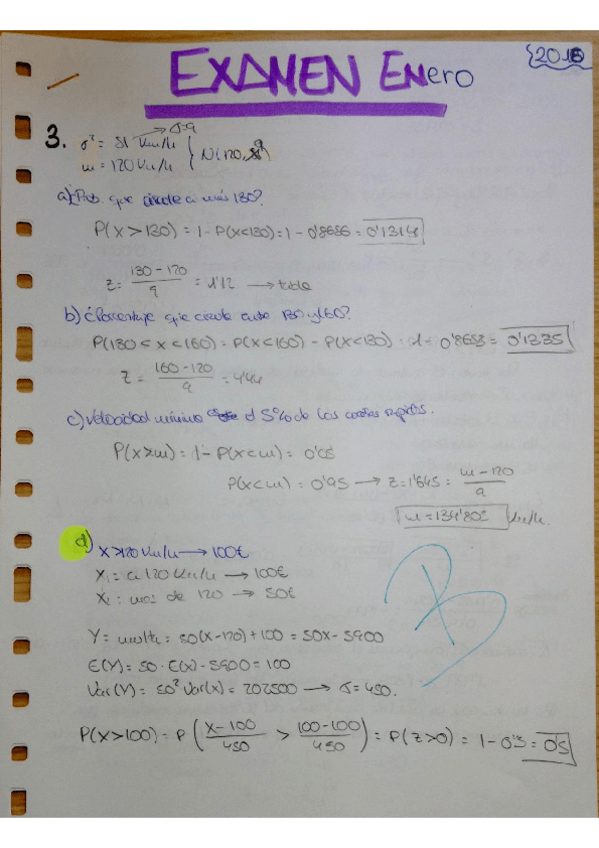 EXAMEN Enero
2016
3. σ² = 81 Km/h → σ=9
m = 120 Km/h } N(120, 9)
a) Prob. que circule a más 130?
P(X > 130) = 1 - P(X<130) = 1 - 0'8686 = 0'1314
Z = 130 - 120 / 9 = 1'12 → tabla
b) ¿Porcentaje que circule entre 130 y 160?
P(130 < X < 160) = P(X<160) - P(X<130) = 1 - 0'8653 = 0'1335
Z = 160 - 120 / 9 = 4'44
c) Velocidad mínima d 5% de los coches rápidos.
P(X>m) = 1 - P(X<m) = 0'05
P(X<m) = 0'95 → Z = 1'645 = m - 120 / 9
m = 134'805 Km/h.
d) X>120 Km/h → 100€
X₁ = a 120 Km/h → 100€
X₂ : mas de 120 → 50€
Y = multa = 50(X-120) + 100 = 50X - 5900
E(Y) = 50 · E(X) - 5900 = 100
Var(Y) = 50² Var(X) = 202500 → σ = 450.
P(X>100) = P ( X - 100 / 450 > 100 - 100 / 450 ) = P(Z>0) = 1 - 0'5 = 0'5